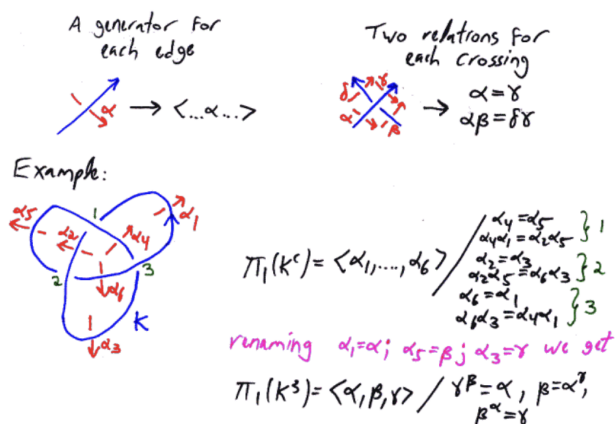 A generator for
each edge
α → <...α...>
Two relations for
each crossing
δ γ
α β
→ α=γ
αβ=δγ
Example:
α₅ α₂ 1 α₄ α₁
2 α₆ 3
K
α₃
π₁(Kᶜ) = <α₁,...,α₆> /
α₄=α₅
α₄α₁=α₂α₅ } 1
α₂=α₃
α₂α₅=α₆α₃ } 2
α₆=α₁
α₆α₃=α₄α₁ } 3
renaming α₁=α; α₅=β; α₃=γ we get
π₁(K³) = <α,β,γ> / γ^β=α, β=α^γ,
β^α=γ